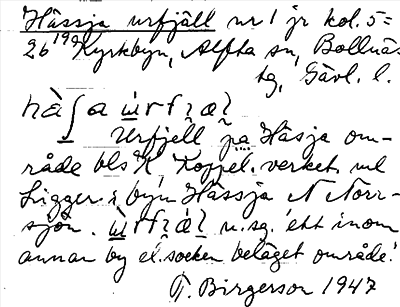 Hässja urfjäll nr 1 jr kol. 5=
26 199 Kyrkbyn, Alfta sn, Bollnäs
tg, Gävl. l.
Urfjell på Häsja om-
råde bls K Koppel. verket ml
Ligger i byn Hässja N Norr-
sjön. n. sg. 'ett inom
annan by el. socken beläget område.'
T. Birgerson 1947